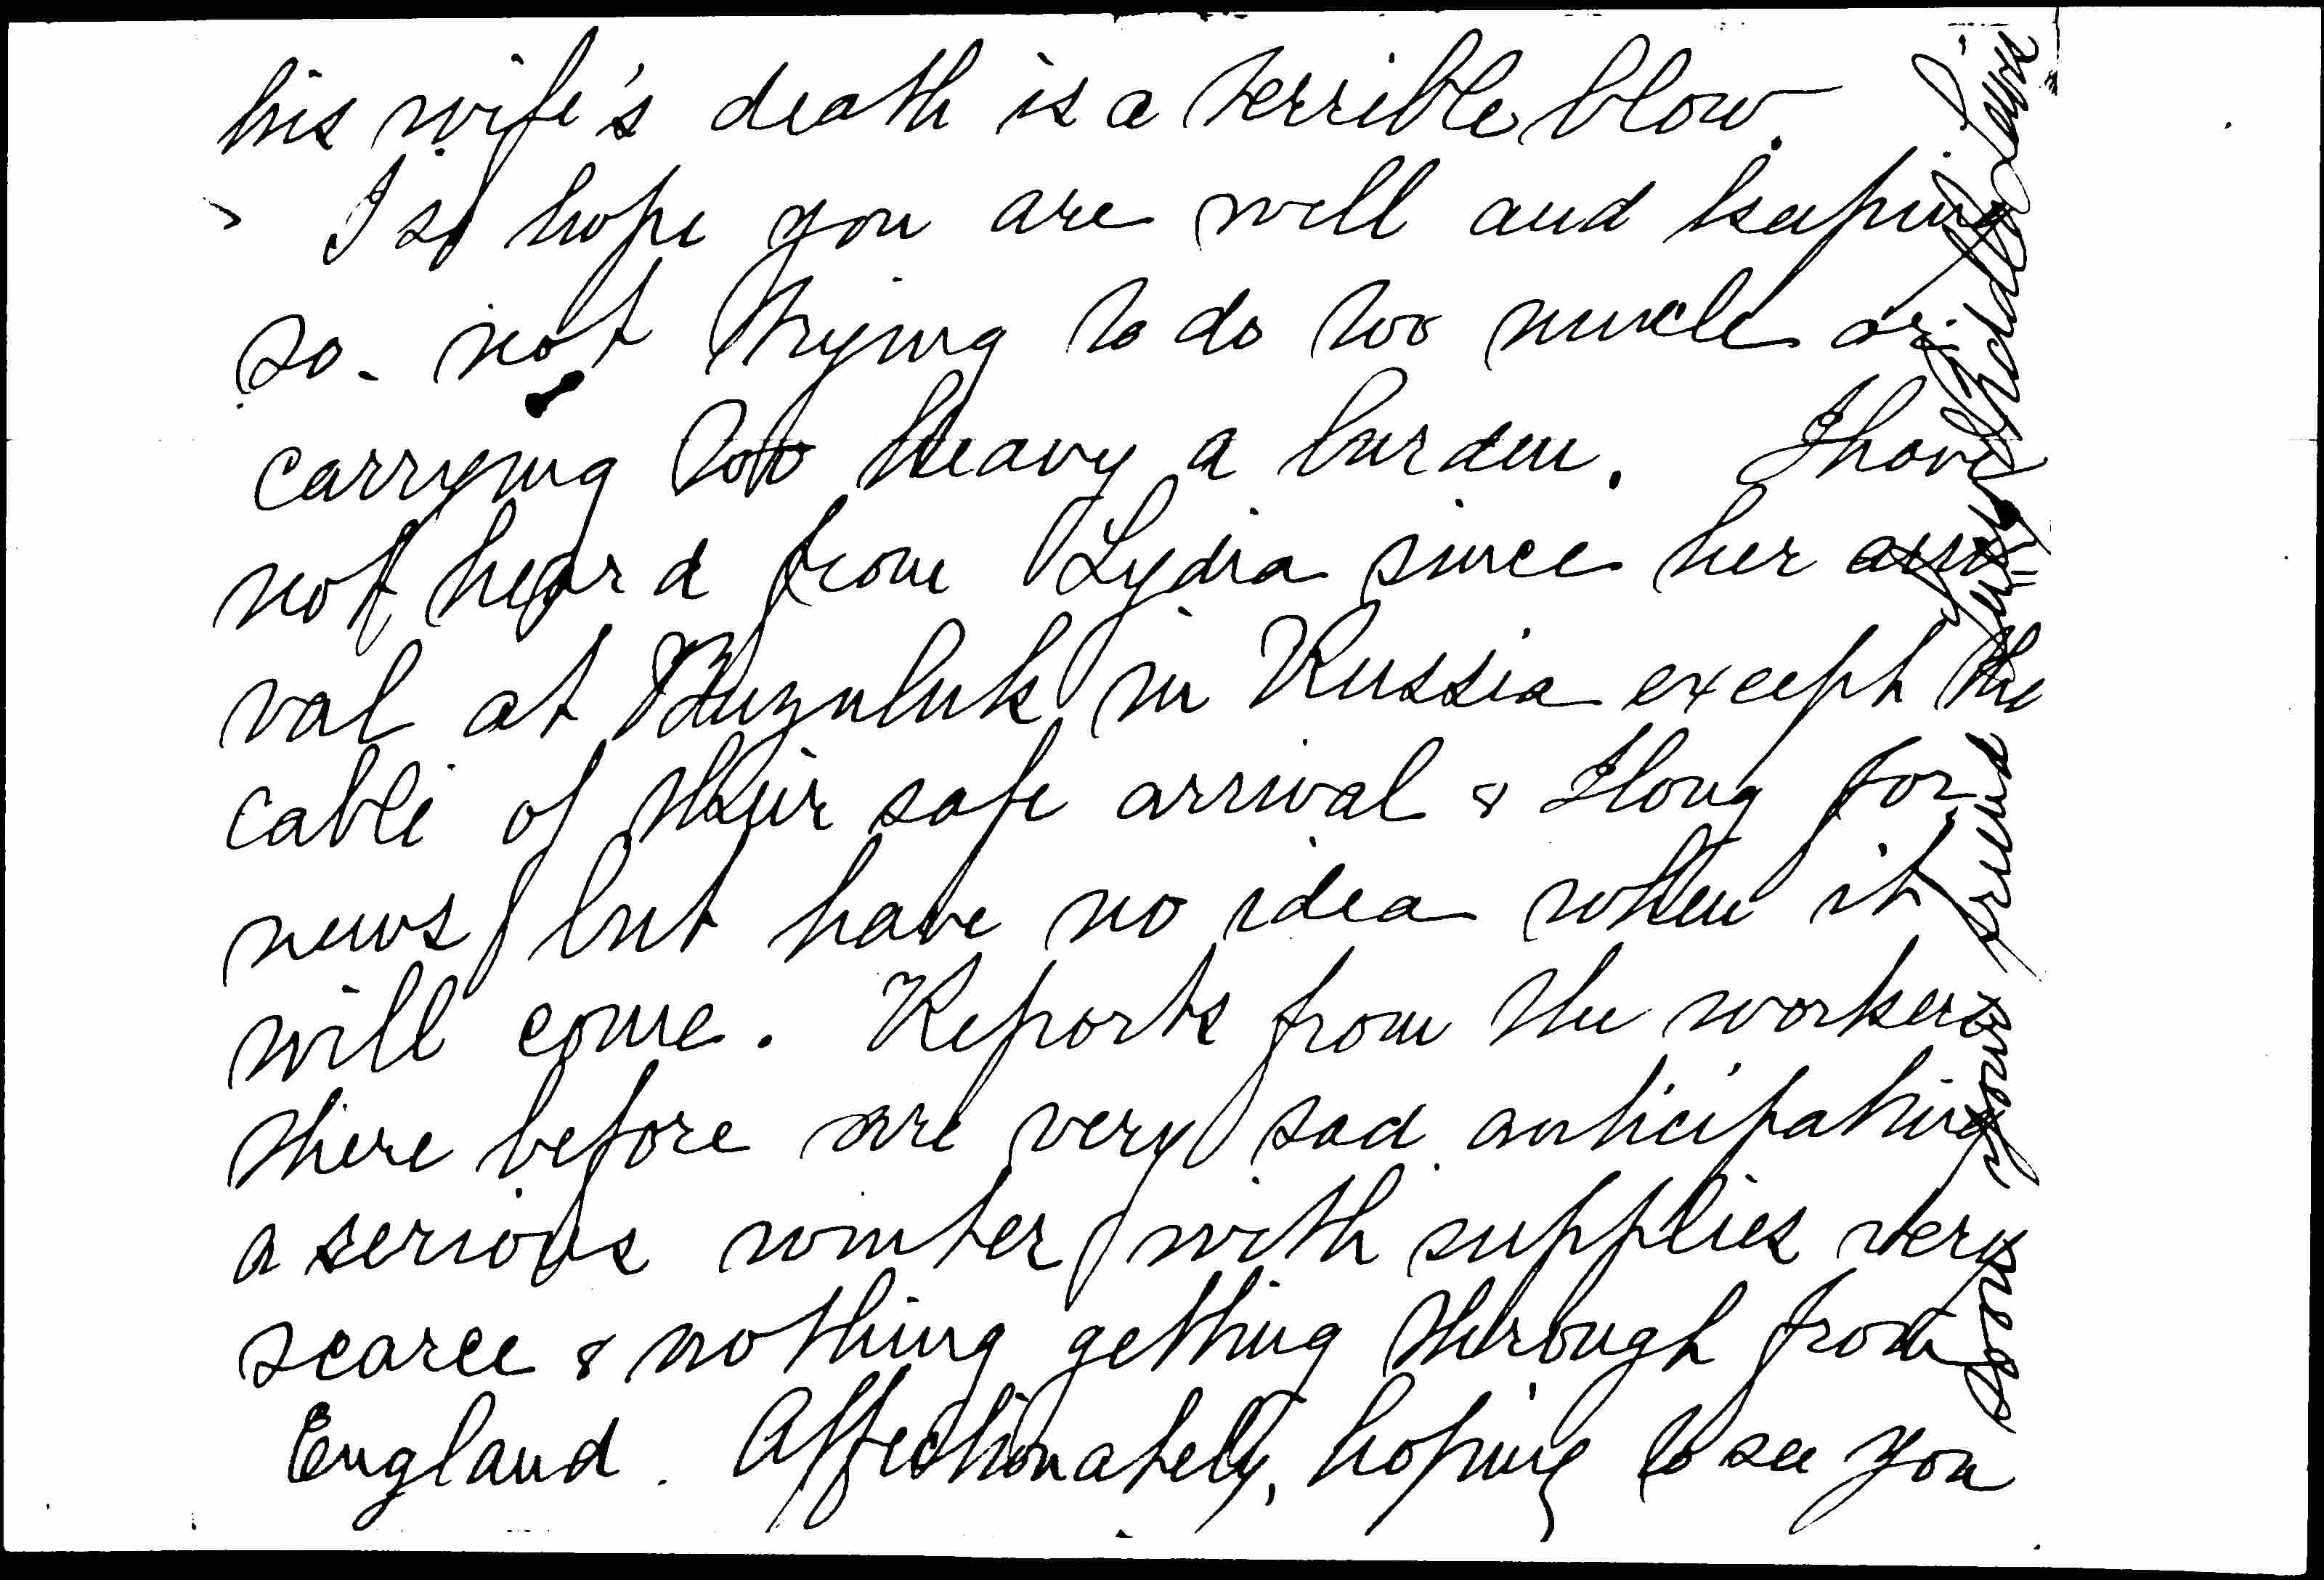 his wife's death is a terrible blow.
I so hope you are well and keeping
so - not trying to do too much or
carrying too heavy a burden. I have
not heard from Lydia since her arri=
val at Buzuluk in Russia except the
cable of their safe arrival & I long for
news but have no idea when it
will come. Reports from the workers
there before are very sad anticipating
a serious winter with supplies very
scarce & nothing getting through from
England. Affectionately, hoping to see you
soon your friend